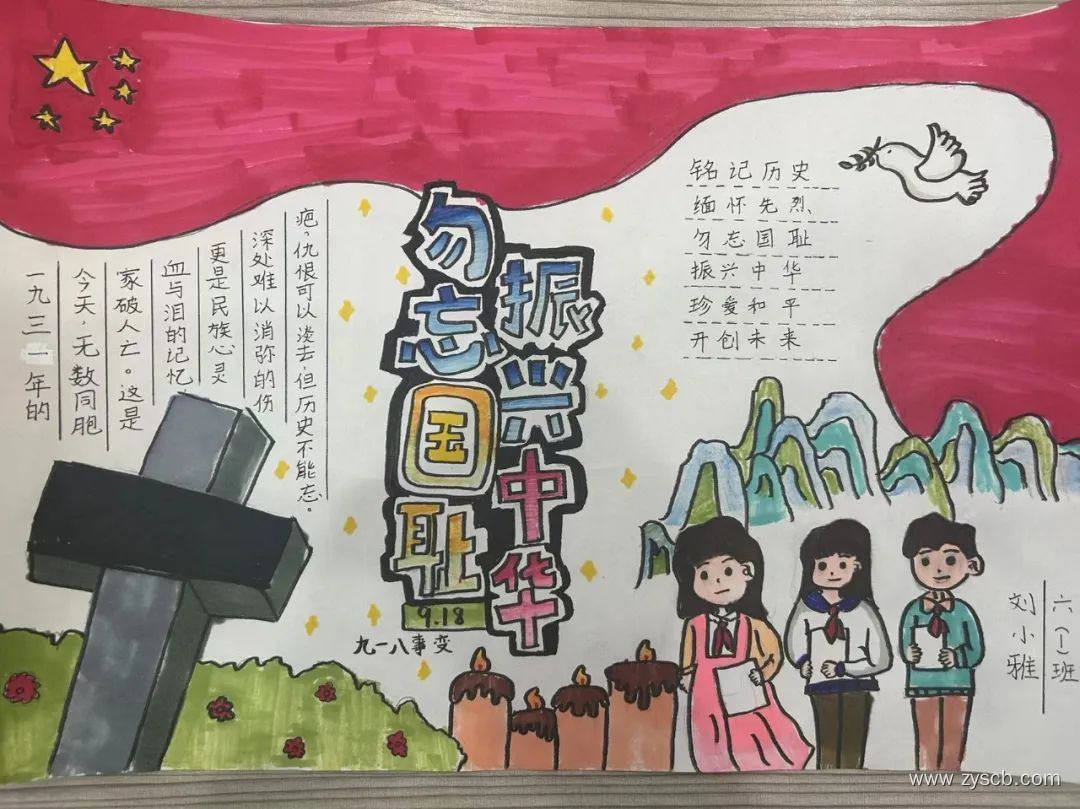 一九三一年的
今天,无数同胞
家破人亡。这是
血与泪的记忆,
更是民族心灵
深处难以消弥的伤
疤,仇恨可以淡去,但历史不能忘。
勿忘国耻
振兴中华
9.18
九一八事变
铭记历史
缅怀先烈
勿忘国耻
振兴中华
珍爱和平
开创未来
六(一)班
刘小雅
www.zyscb.com